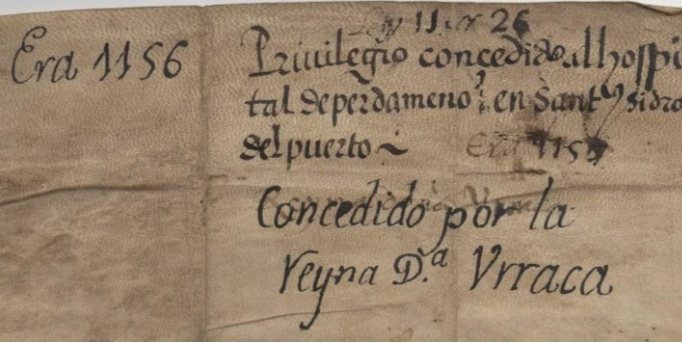 Era 1156
11 26
Priuilegio concedido al hospi
tal de perdameno, en Sant ysidro
del puerto
Era 115
Concedido por la
reyna D.ª Vrraca